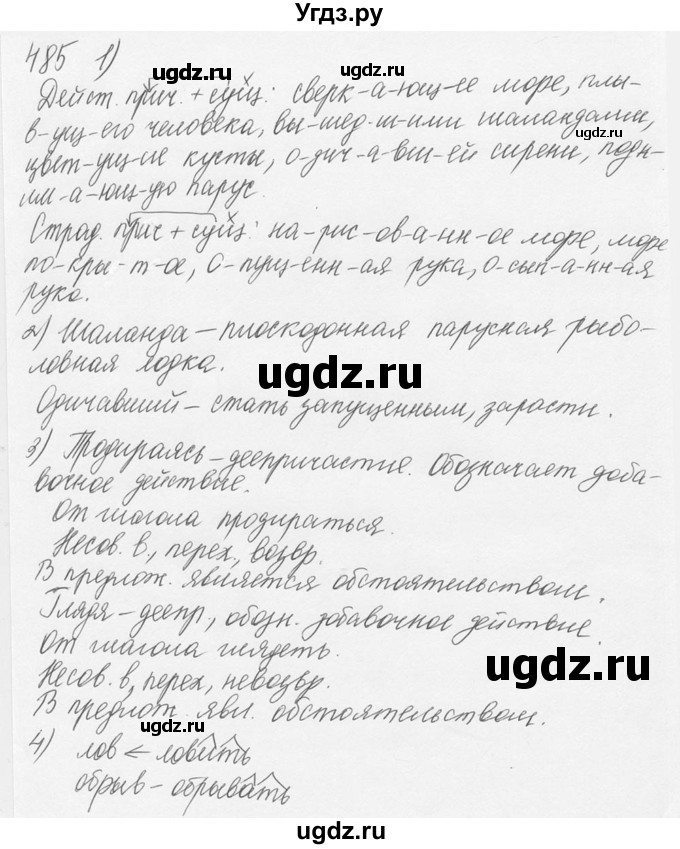 Угдз.ру
485 1)
ugdz.ru ugdz.ru
Дейст. прич. + сущ: сверк-а-ющ-ее море, плы-
в-ущ-его человека, вы-шед-ш-ими шаландами,
ugdz.ru
цвет-ущ-ие кусты, о-дич-а-вш-ей сирени, подн-
им-а-ющ-ую парус.
Страд. прич + сущ: на-рис-ов-а-нн-ое море, море
по-кры-т-ое, о-пущ-енн-ая рука, о-сып-а-нн-ая
рука.
2) Шаланда – плоскодонная парусная рыбо-
ловная лодка.
ugdz.ru
Одичавший – стать запущенным, зарасти.
3) Продираясь – деепричастие. Обозначает доба-
вочное действие.
От глагола продираться.
Несов. в., перех., возвр.
В предлож. является обстоятельством.
Глядя – деепр, обозн. добавочное действие.
От глагола глядеть.
ugdz.ru
Несов. в, перех, невозвр.
В предлож. явл. обстоятельством.
ugdz.ru
4) лов < ловить
обрыв – обрывать
ugdz.ru